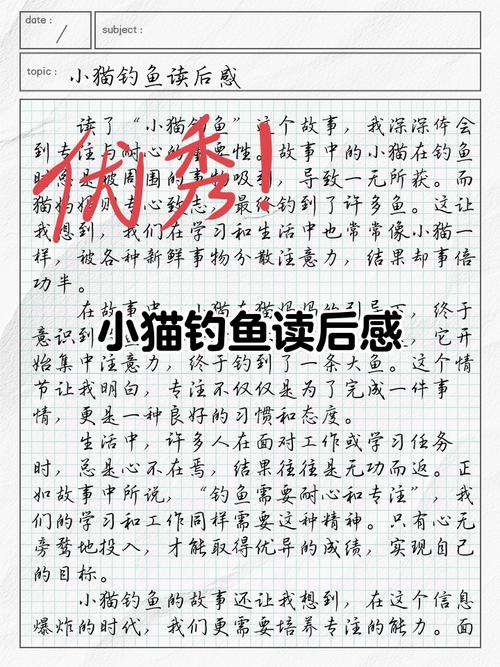 date:
/
subject:
topic: 小猫钓鱼读后感
读了“小猫钓鱼”这个故事，我深深体会
到专注与耐心的重要性。故事中的小猫在钓鱼
时总是被周围的事物吸引，导致一无所获。而
猫妈妈则专心致志，最终钓到了许多鱼。这让
我想到，我们在学习和生活中也常常像小猫一
样，被各种新鲜事物分散注意力，结果却事倍
功半。
优秀！
在故事中，小猫在猫妈妈的引导下，终于
小猫钓鱼读后感
意识到 它开
始集中注意力，终于钓到了一条大鱼。这个情
节让我明白，专注不仅仅是为了完成一件事
情，更是一种良好的习惯和态度。
生活中，许多人在面对工作或学习任务
时，总是心不在焉，结果往往是无功而返。正
如故事中所说，“钓鱼需要耐心和专注”，我
们的学习和工作同样需要这种精神。只有心无
旁骛地投入，才能取得优异的成绩，实现自己
的目标。
小猫钓鱼的故事还让我想到，在这个信息
爆炸的时代，我们更需要培养专注的能力。面